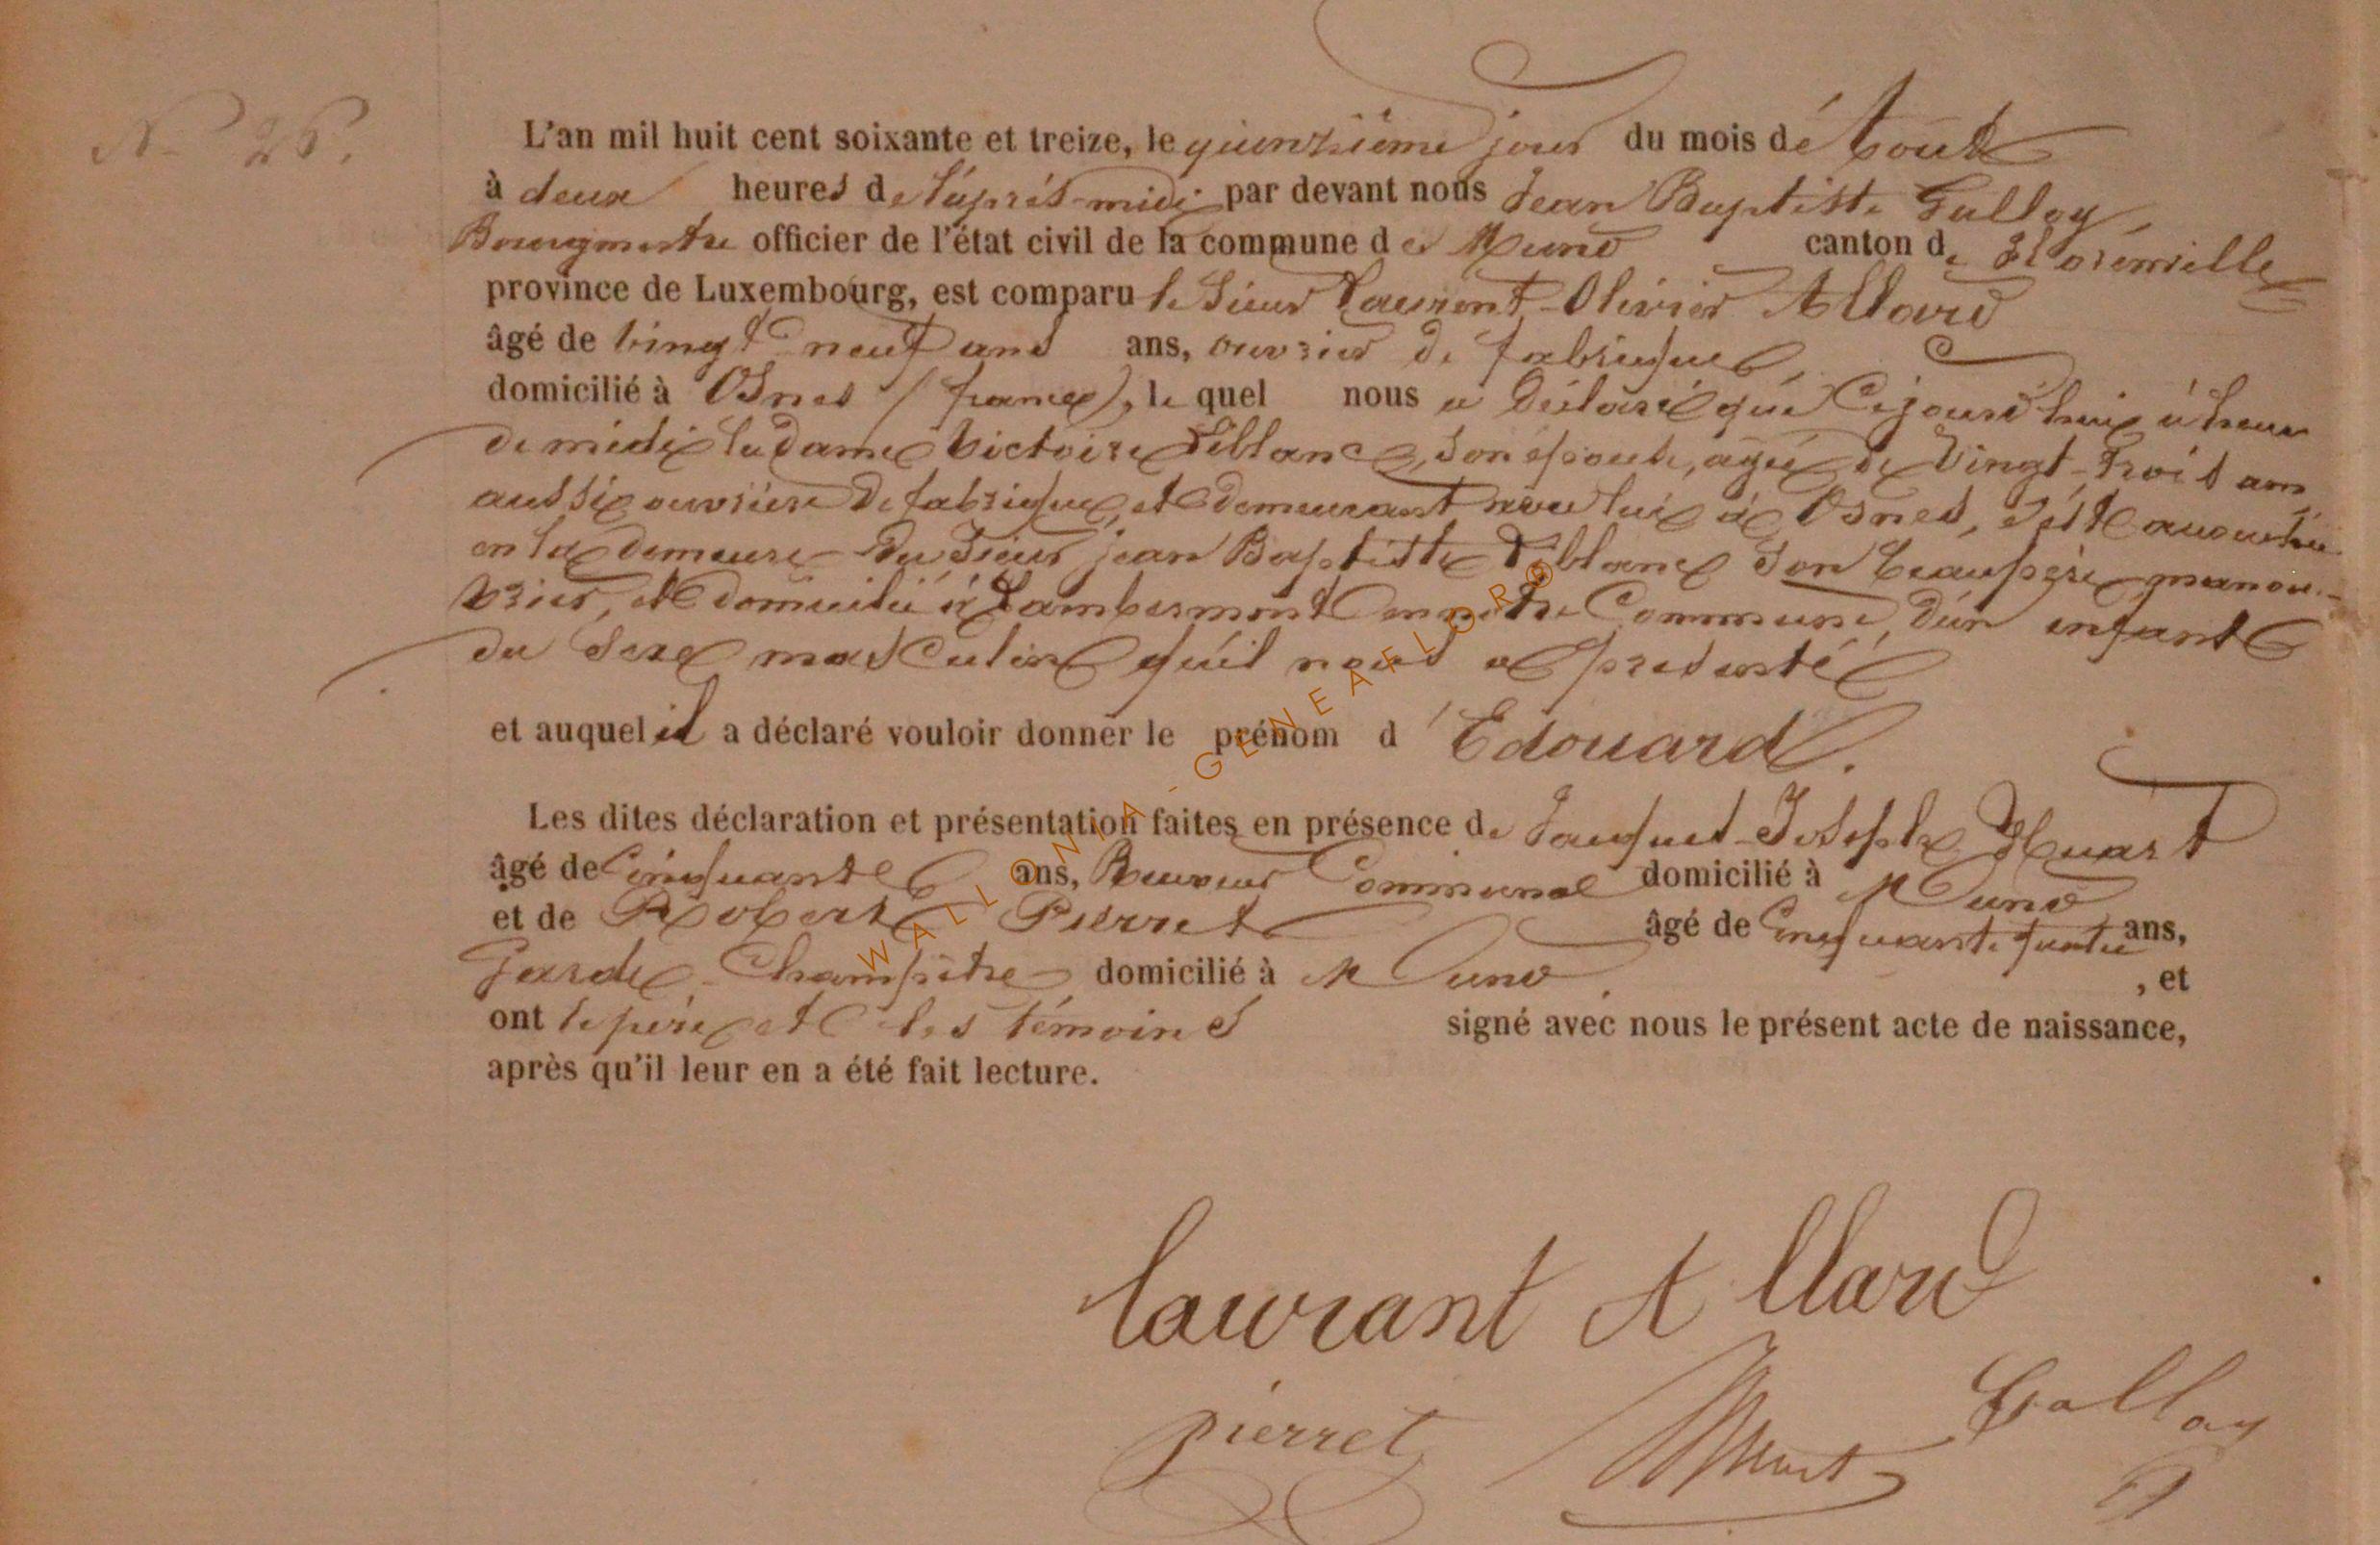 N° 26.
L'an mil huit cent soixante et treize, le quinzième jour du mois d'Août
à deux heures de l'après-midi par devant nous Jean Baptiste Galloy,
Bourgmestre officier de l'état civil de la commune de Muno canton de Florenville
province de Luxembourg, est comparu le Sieur Laurent-Olivier Allard
âgé de vingt neuf ans ans, ouvrier de fabrique,
domicilié à Osnes (france), le quel nous a déclaré que Cejourd'hui à heure
de midi la dame Victoire Leblanc, son épouse, agée de Vingt-trois ans,
aussi ouvrière de fabrique, et demeurant avec lui à Osnes, s'est accouchée
en la demeure du Sieur jean Baptiste Leblanc son beau père manou-
vrier, et domicilié à Lambermont en notre Commune, d'un enfant
du sexe masculin qu'il nous a presenté
et auquel il a déclaré vouloir donner le prénom d'Edouard.
Les dites déclaration et présentation faites en présence de Jacques-Joseph Huart
âgé de Cinquante ans, Receveur Communal domicilié à Muno
et de Robert Pierret âgé de Cinquante quatre ans,
Garde-Champêtre domicilié à Muno, et
ont le père et les témoins signé avec nous le présent acte de naissance,
après qu'il leur en a été fait lecture.
laurant Allard
pierret Huart Galloy
WALLONIA-GENEAFLORE